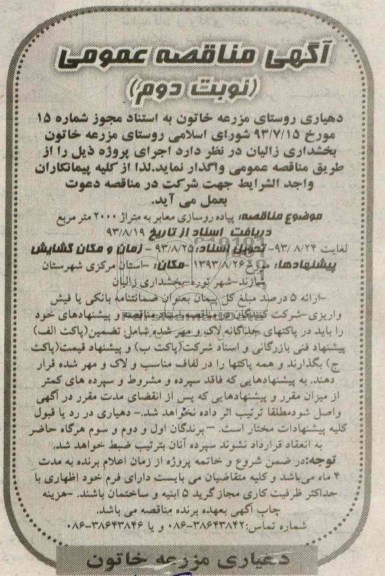 آگهی مناقصه عمومی
(نوبت دوم)
دهیاری روستای مزرعه خاتون به استناد مجوز شماره ۱۵
مورخ ۹۳/۷/۱۵ شورای اسلامی روستای مزرعه خاتون
بخشداری زالیان در نظر دارد اجرای پروژه ذیل را از
طریق مناقصه عمومی واگذار نماید.لذا از کلیه پیمانکاران
واجد الشرایط جهت شرکت در مناقصه دعوت
بعمل می آید.
موضوع مناقصه: پیاده روسازی معابر به متراژ ۲۰۰۰ متر مربع
دریافت اسناد از تاریخ ۹۳/۸/۱۹
لغایت ۹۳/۸/۲۴- تحویل اسناد: ۹۳/۸/۲۵ - زمان و مکان گشایش
پیشنهادها: ۱۳۹۳/۸/۲۶ -مکان: -استان مرکزی شهرستان
شازند-شهر توره-بخشداری زالیان
-ارائه ۵ درصد مبلغ کل پیمان بعنوان ضمانتنامه بانکی یا فیش
واریزی-شرکت کنندگان در مناقصه اسناد مناقصه و پیشنهادهای خود
را باید در پاکتهای جداگانه لاک و مهر شده شامل تضمین(پاکت الف)
پیشنهاد فنی بازرگانی و اسناد شرکت(پاکت ب) و پیشنهاد قیمت(پاکت
ج) بگذارند و همه پاکتها را در لفاف مناسب و لاک و مهر شده قرار
دهند. به پیشنهادهایی که فاقد سپرده و مشروط و سپرده های کمتر
از میزان مقرر و پیشنهادهایی که پس از انقضای مدت مقرر در آگهی
واصل شودمطلقا ترتیب اثر داده نخواهد شد.- دهیاری در رد یا قبول
کلیه پیشنهادات مختار است. - برندگان اول و دوم و سوم هرگاه حاضر
به انعقاد قرارداد نشوند سپرده آنان بترتیب ضبط خواهد شد.
توجه:در ضمن شروع و خاتمه پروژه از زمان اعلام برنده به مدت
۴ ماه می‌باشد و کلیه متقاضیان می بایست دارای فرم خود اظهاری با
حداکثر ظرفیت کاری مجاز گرید ۵ ابنیه و ساختمان باشند. -هزینه
چاپ آگهی بعهده برنده مناقصه می باشد.
شماره تماس:۳۸۶۴۳۸۴۲-۰۸۶ و یا ۳۸۶۴۳۸۴۶-۰۸۶
دهیاری مزرعه خاتون